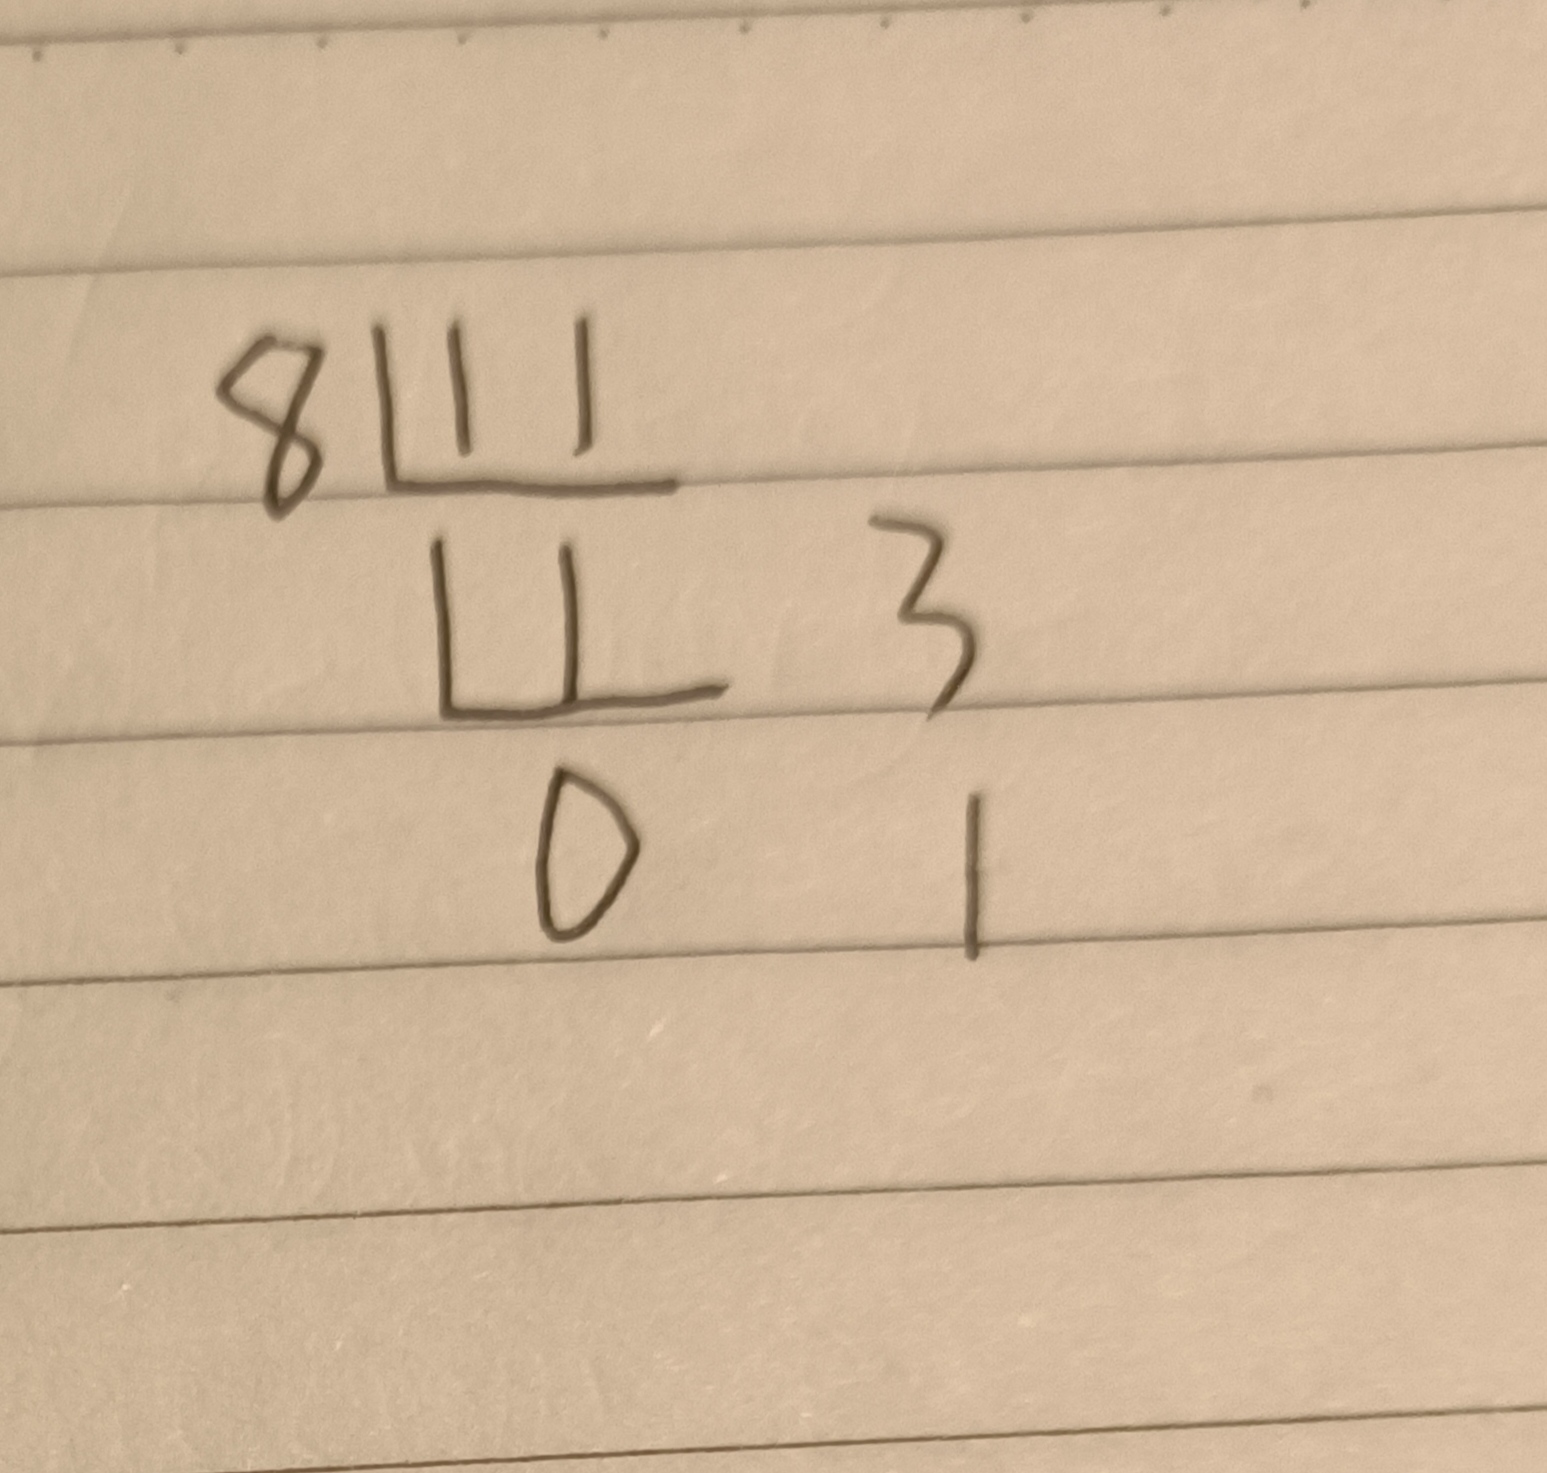 8 11
1 3
0 1